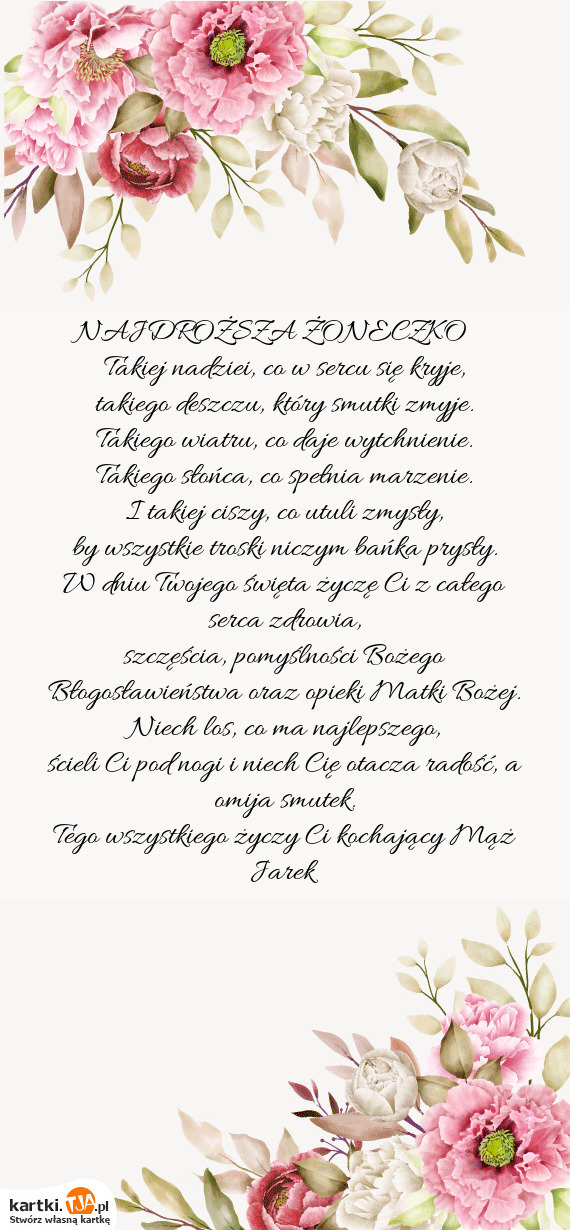 NAJDROŻSZA ŻONECZKO
Takiej nadziei, co w sercu się kryje,
takiego deszczu, który smutki zmyje.
Takiego wiatru, co daje wytchnienie.
Takiego słońca, co spełnia marzenie.
I takiej ciszy, co utuli zmysły,
by wszystkie troski niczym bańka prysły.
W dniu Twojego święta życzę Ci z całego
serca zdrowia,
szczęścia, pomyślności Bożego
Błogosławieństwa oraz opieki Matki Bożej.
Niech los, co ma najlepszego,
ścieli Ci pod nogi i niech Cię otacza radość, a
omija smutek.
Tego wszystkiego życzy Ci kochający Mąż
Jarek
kartki.TJA.pl
Stwórz własną kartkę